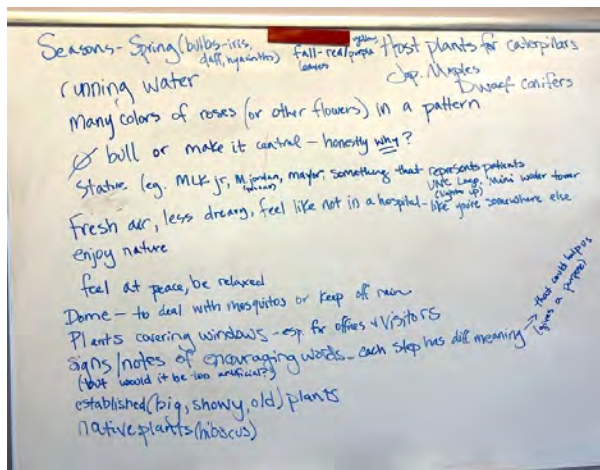 Seasons - Spring (bulbs - iris, daff, hyacinths) fall - red/purple yellow leaves Host plants for caterpillars
Jap. Maples
Dwarf conifers
running water
many colors of roses (or other flowers) in a pattern
∅ bull or make it central - honestly why?
Statue (eg. MLK jr, M. Jordan, mayor, something that represents patients
UNC Logo, Mini water tower
(lights up)
Fresh air, less dreary, feel like not in a hospital - like you're somewhere else
enjoy nature
feel at peace, be relaxed
Dome - to deal with mosquitos or keep off rain
Plants covering windows - esp. for offices + visitors
signs/notes of encouraging words - each step has diff meaning → that could help us
(gives a purpose)
(but would it be too artificial?)
established (big, showy, old) plants
native plants (hibiscus)